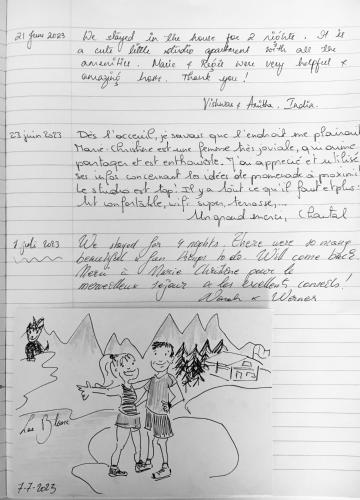 21 June 2023
We stayed in the house for 2 nights. It is
a cute little studio apartment with all the
amenities. Marie & Régis were very helpful &
amazing hosts. Thank you!
Vishwas & Anitha. India.
23 juin 2023
Dès l'acceuil, je savais que l'endroit me plairait
Marie-Christine est une femme très joviale, qui aime
partager et est enthousiaste. J'ai apprécié et utilisé
ses infos concernant les idées de promenade à proximité
Le studio est top! Il y a tout ce qu'il faut et plus:
lit confortable, wifi super, terrasse,...
Un grand merci, Chantal
7 juli 2023
We stayed for 4 nights. There were so many
beautiful & fun things to do. Will come back.
Merci à Marie Christine pour le
merveilleux séjour & les excellents conseils!
& Werner
Lac Blanc
7-7-2023